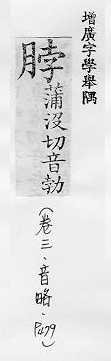 增廣字學舉隅
脖 蒲沒切音勃
(卷三、音略、